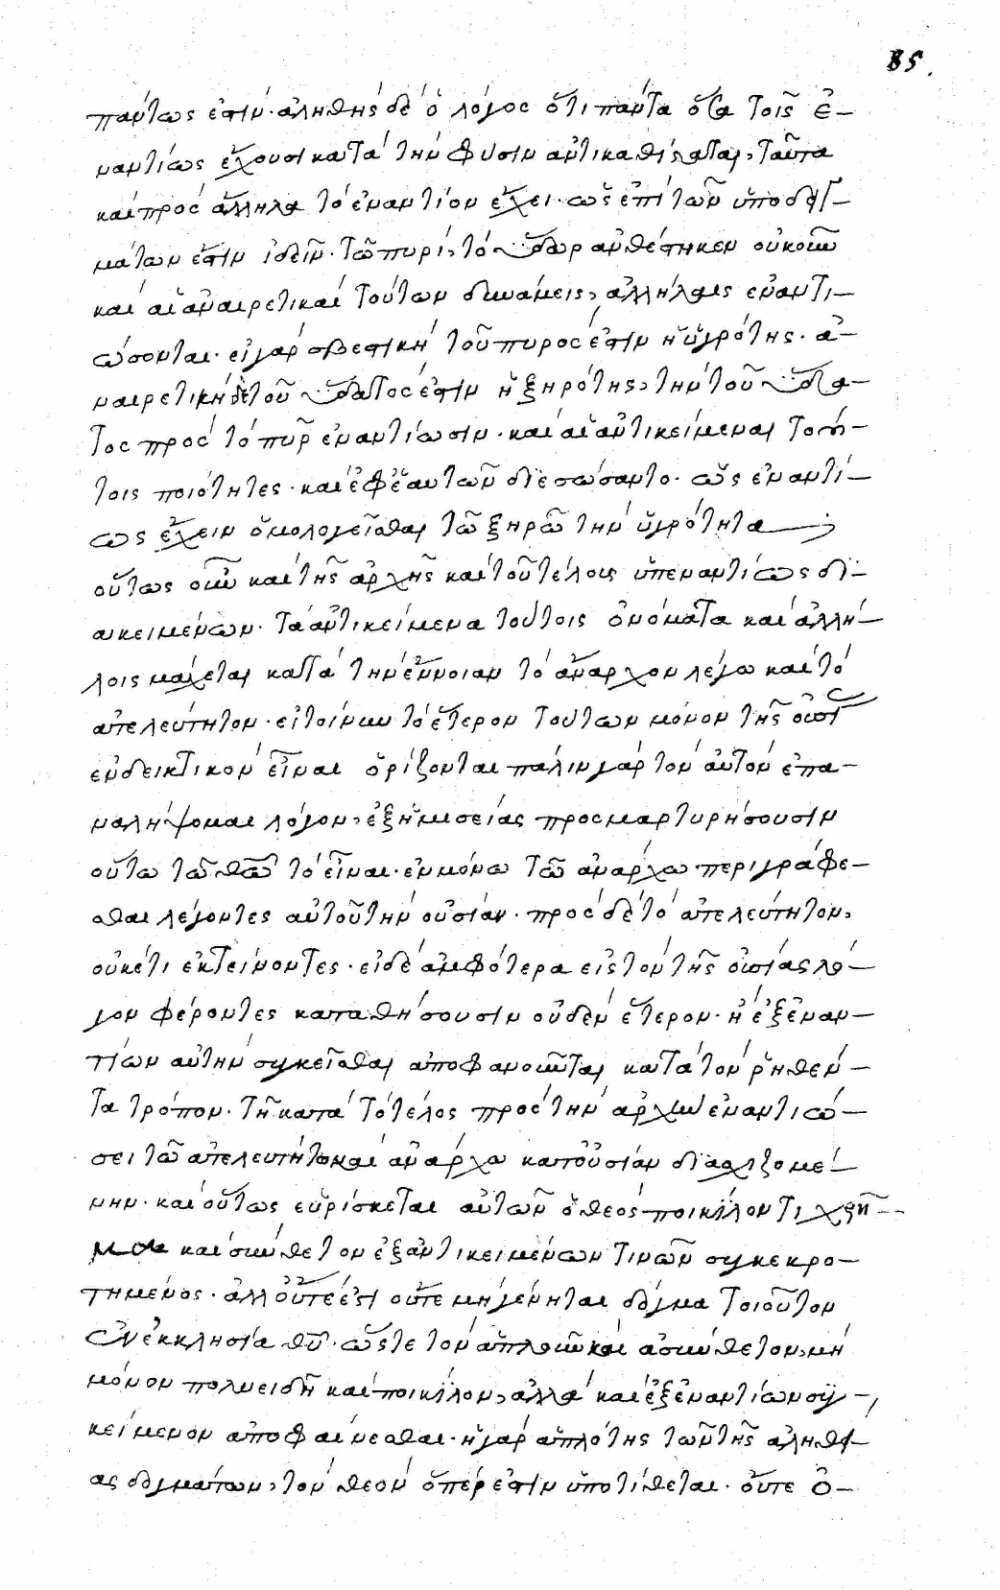 85.
πάντως ἐστίν· ἀληθὴς δὲ ὁ λόγος ὅτι πάντα ὅσα τοῖς ἐ-
ναντίως ἔχουσι κατὰ τὴν φύσιν ἀντικαθίσταται, ταῦτα
καὶ πρὸς ἄλληλα τὸ ἐναντίον ἔχει· ὡς ἐπὶ τῶν ὑποδειγ-
μάτων ἐστὶν ἰδεῖν· τῶ πυρὶ, τὸ ὕδωρ ἀνθέστηκεν οὐκοῦν
καὶ αἱ ἀναιρετικαὶ τούτων δυνάμεις, ἀλλήλαις ἐναντι-
ώσονται· εἰ γὰρ σβεστικὴ τοῦ πυρός ἐστιν ἡ ὑγρότης· ἀ-
ναιρετικὴ δὲ τοῦ ὕδατός ἐστιν ἡ ξηρότης, τὴν τοῦ ὕδα-
τος πρὸς τὸ πῦρ ἐναντίωσιν· καὶ αἱ ἀντικείμεναι τού-
τοις ποιότητες· καὶ ἐφ' ἑαυτῶν διεσώσαντο· ὡς ἐναντί-
ως ἔχειν ὁμολογεῖσθαι τῶ ξηρῶ τὴν ὑγρότητα
οὕτως οὖν καὶ τῆς ἀρχῆς καὶ τοῦ τέλους ὑπεναντίως δι-
ακειμένων· τὰ ἀντικείμενα τούτοις ὀνόματα καὶ ἀλλή-
λοις μάχεται κατὰ τὴν ἔννοιαν τὸ ἄναρχον λέγω καὶ τὸ
ἀτελεύτητον· εἰ τοίνυν τὸ ἕτερον τούτων μόνον τῆς οὐσί
ἐνδεικτικὸν εἶναι ὁρίζονται πάλιν γὰρ τὸν αὐτὸν ἐπα-
ναλήψομαι λόγον, ἐξ ἡμισείας προσμαρτυρήσουσιν
οὕτω τῶ θῶ τὸ εἶναι· ἐν μόνω τῶ ἀνάρχω περιγράφε-
σθαι λέγοντες αὐτοῦ τὴν οὐσίαν· πρὸς δὲ τὸ ἀτελεύτητον,
οὐκέτι ἐκτείνοντες· εἰ δὲ ἀμφότερα εἰς τὸν τῆς οὐσίας λό-
γον φέροντες καταθήσουσιν οὐδὲν ἕτερον· ἢ ἐξ ἐναν-
τίων αὐτὴν συγκεῖσθαι ἀποφανοῦνται κατὰ τὸν ῥηθέν-
τα τρόπον· τῆ κατὰ τὸ τέλος πρὸς τὴν ἀρχὴν ἐναντιώ-
σει τῶ ἀτελευτήτω καὶ ἀνάρχω κατ' οὐσίαν διασχιζομέ-
νην· καὶ οὕτως εὑρίσκεται αὐτῶν ὁ θεὸς ποικίλον τι χρῆ--
μα καὶ σύνθετον ἐξ ἀντικειμένων τινῶν συγκεκρο-
τημένος· ἀλλ' οὔτέ ἐστι οὔτε μὴ γένηται δόγμα τοιοῦτον
ἐν ἐκκλησία θῦ· ὥστε τὸν ἁπλοῦν καὶ ἀσύνθετον, μὴ
μόνον πολυειδῆ καὶ ποικίλον, ἀλλὰ καὶ ἐξ ἐναντίων συγ-
κείμενον ἀποφαίνεσθαι· ἡ γὰρ ἁπλότης τῶν τῆς ἀληθεί-
ας δογμάτων, τὸν θεὸν ὅπέρ ἐστιν ὑποτίθεται· οὔτε ὀ-